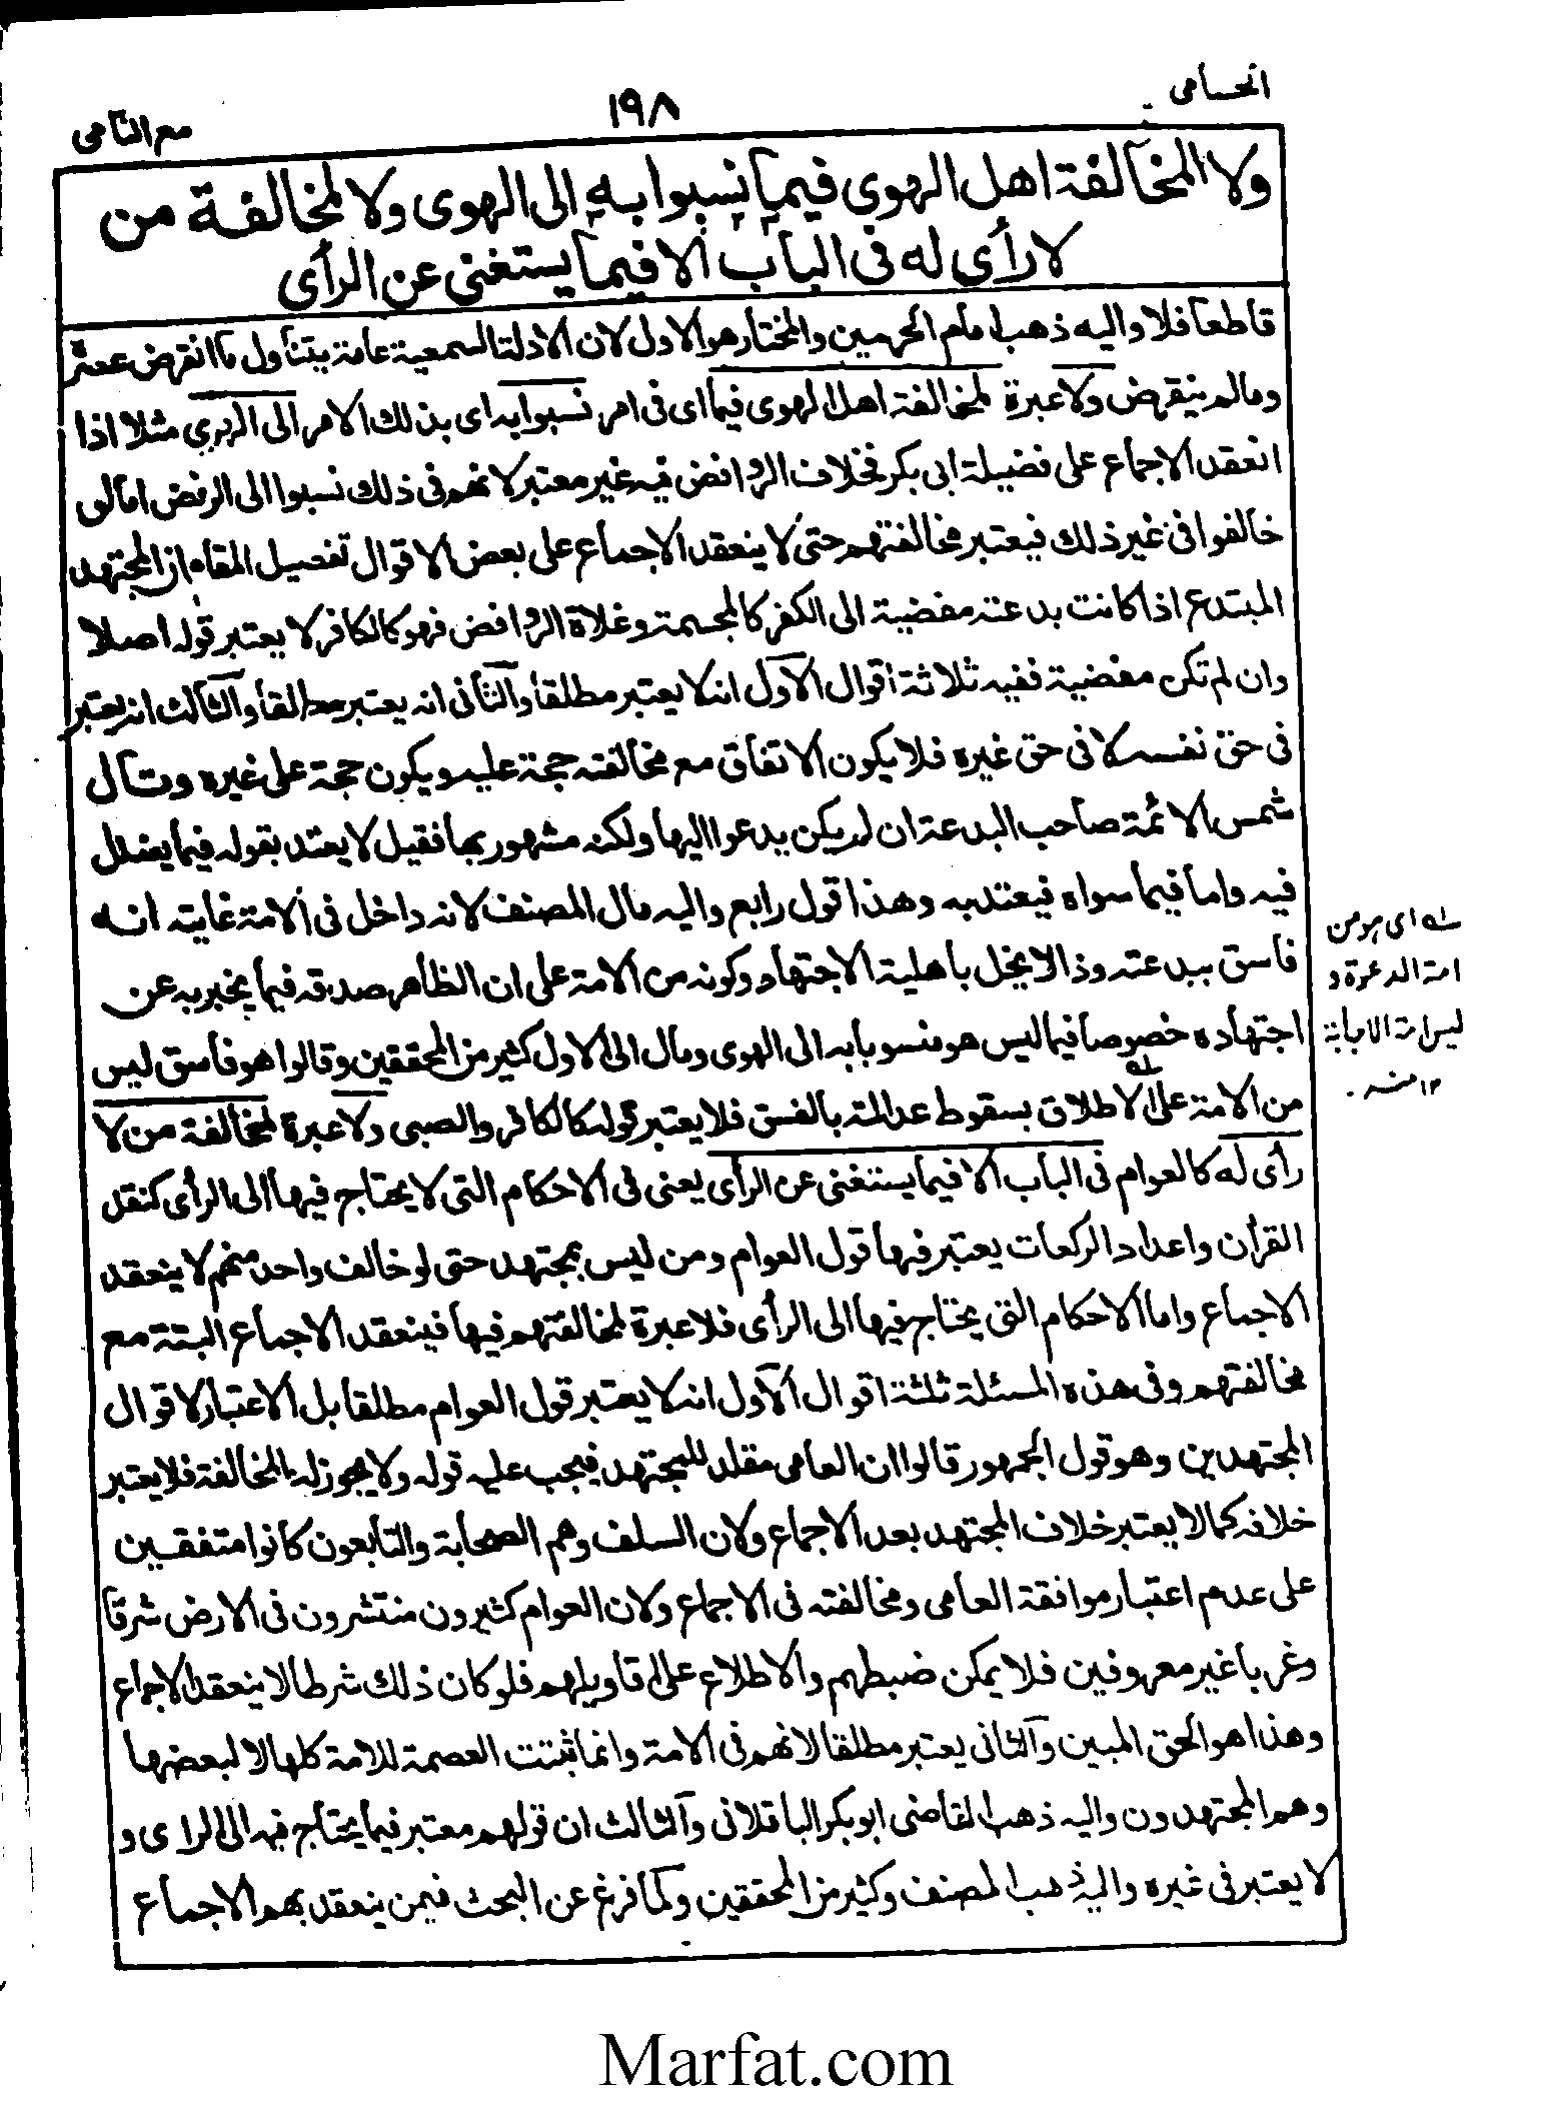 الحسامی
١٩٨
مع النامی
ولا لمخالفة اهل الهوى فيما نسبوا به الى الهوى ولا لمخالفة من
لا رأى له فى الباب الا فيما يستغنى عن الرأى
قاطعا فلا واليه ذهب امام الحرمين والمختار هو الاول لان الادلة السمعية عامة يتناول ما انقرض عصره
ومالم ينقرض ولا عبرة لمخالفة اهل الهوى فيما اى فى امر نسبوا به اى بذلك الامر الى الهوى مثلا اذا
انعقد الاجماع على فضيلة ابى بكر فخلاف الروافض فيه غير معتبر لانهم فى ذلك نسبوا الى الرفض اما لو
خالفوا فى غير ذلك فيعتبر مخالفتهم حتى لا ينعقد الاجماع على بعض الاقوال تفصيل المقام ان المجتهد
المبتدع اذا كانت بدعته مفضية الى الكفر كالمجسمة وغلاة الروافض فهو كالكافر لا يعتبر قوله اصلا
وان لم تكن مفضية ففيه ثلاثة اقوال الاول انه لا يعتبر مطلقا والثانى انه يعتبر مطلقا والثالث انه يعتبر
فى حق نفسه لا فى حق غيره فلا يكون الاتفاق مع مخالفته حجة عليه ويكون حجة على غيره وقال
شمس الائمة صاحب البدعة ان لم يكن يدعوا اليها ولكنه مشهور بها فقيل لا يعتد بقوله فيما يضلل
فيه واما فيما سواه فيعتد به وهذا قول رابع واليه مال المصنف لانه داخل فى الامة غايته انه
فاسق ببدعته وذا لا يخل باهلية الاجتهاد وكونه من الامة على ان الظاهر صدقه فيما يخبر به عن
اجتهاده خصوصا فيما ليس هو منسوبا به الى الهوى ومال الى الاول كثير من المحققين وقالوا هو فاسق ليس
من الامة على الاطلاق بسقوط عدالته بالفسق فلا يعتبر قوله كالكافر والصبى ولا عبرة لمخالفة من لا
رأى له كالعوام فى الباب الا فيما يستغنى عن الرأى يعنى فى الاحكام التى لا يحتاج فيها الى الرأى كنقل
القرأن واعداد الركعات يعتبر فيها قول العوام ومن ليس بمجتهد حتى لو خالف واحد منهم لا ينعقد
الاجماع واما الاحكام التى يحتاج فيها الى الرأى فلا عبرة لمخالفتهم فيها فينعقد الاجماع البتة مع
مخالفتهم وفى هذه المسئلة ثلثة اقوال الاول انه لا يعتبر قول العوام مطلقا بل الاعتبار لاقوال
المجتهدين وهو قول الجمهور قالوا ان العامى مقلد للمجتهد فيجب عليه قوله ولا يجوز له المخالفة فلا يعتبر
خلافه كما لا يعتبر خلاف المجتهد بعد الاجماع ولان السلف وهم الصحابة والتابعون كانوا متفقين
على عدم اعتبار موافقة العامى ومخالفته فى الاجماع ولان العوام كثيرون منتشرون فى الارض شرقا
وغربا غير معروفين فلا يمكن ضبطهم والاطلاع على اقاويلهم فلو كان ذلك شرطا لا ينعقد الاجماع
وهذا هو الحق المبين والثانى يعتبر مطلقا لانهم فى الامة وانما ثبتت العصمة للامة كلها لا لبعضها
وهم المجتهدون واليه ذهب القاضى ابو بكر الباقلانى والثالث ان قولهم معتبر فيما يحتاج فيه الى الراى و
لا يعتبر فى غيره واليه ذهب المصنف وكثير من المحققين ولما فرغ عن البحث فيمن ينعقد بهم الاجماع
له اى هو من
امة الدعوة و
ليس امة الاجابة
١٢ منه .
Marfat.com